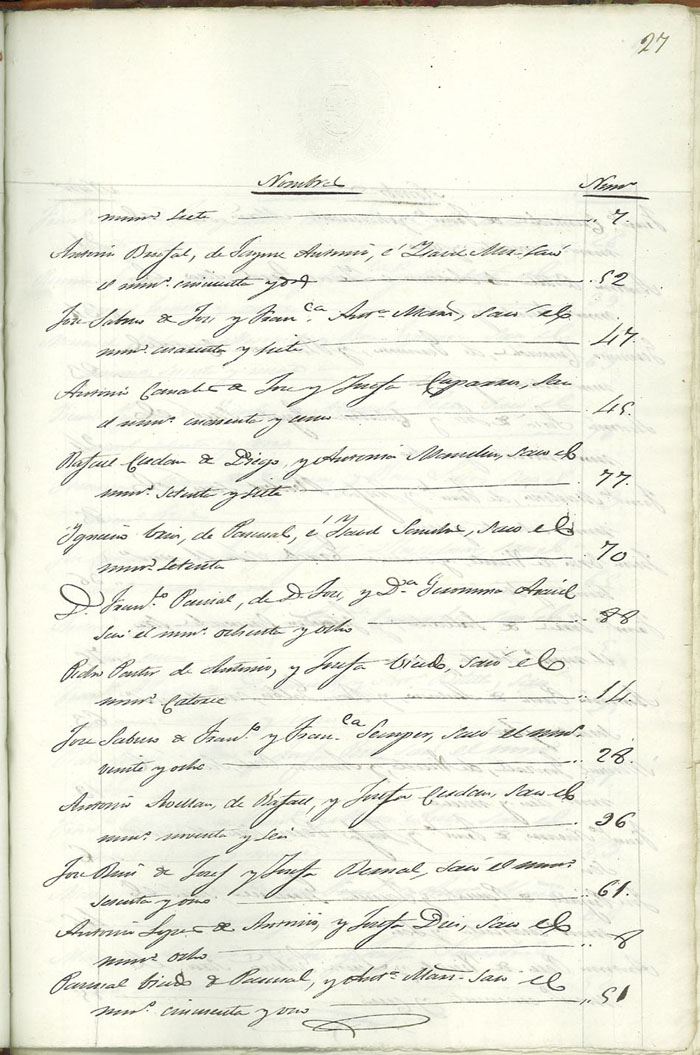 27
Nombres Numº
numº siete .. 7.
Antonio de Jayme Antonio, é Ysavel sacó
el numº cincuenta y dos .. 52
Jose de Jose y Franca. Anta. Mañ, sacó el
numº cuarenta y siete 47.
Antonio Canales de Jose y Josefa Caparros, sacó
el numº cuarenta y 45.
Rafael Cerdan de Diego, y Antonia sacó el
numº setenta y siete 77.
Ygnacio de Pascual, é Ysavel Sanchez, saco el
numº setenta 70
D. Franto. Pascual, de D. Jose, y Da. Geronima
sacó el numº ochenta y ocho .. 88
Pedro Pastor de Antonio, y Josefa sacó el
numº catorce .. 14.
Jose de Franto. y Franca. Semper, sacó el numº
veinte y ocho 28.
Antonio Avellan, de Rafael, y Josefa Cerdan, saco el
numº noventa y seis 96
Jose de Josef y Josefa Bernal, sacó el numº
sesenta y uno .. 61.
Antonio Lopez de Antonio, y Josefa saco el
numº ocho .. 8
Pascual de Pascual, y Anta. Mañ. saco el
numº cincuenta y uno .. 51